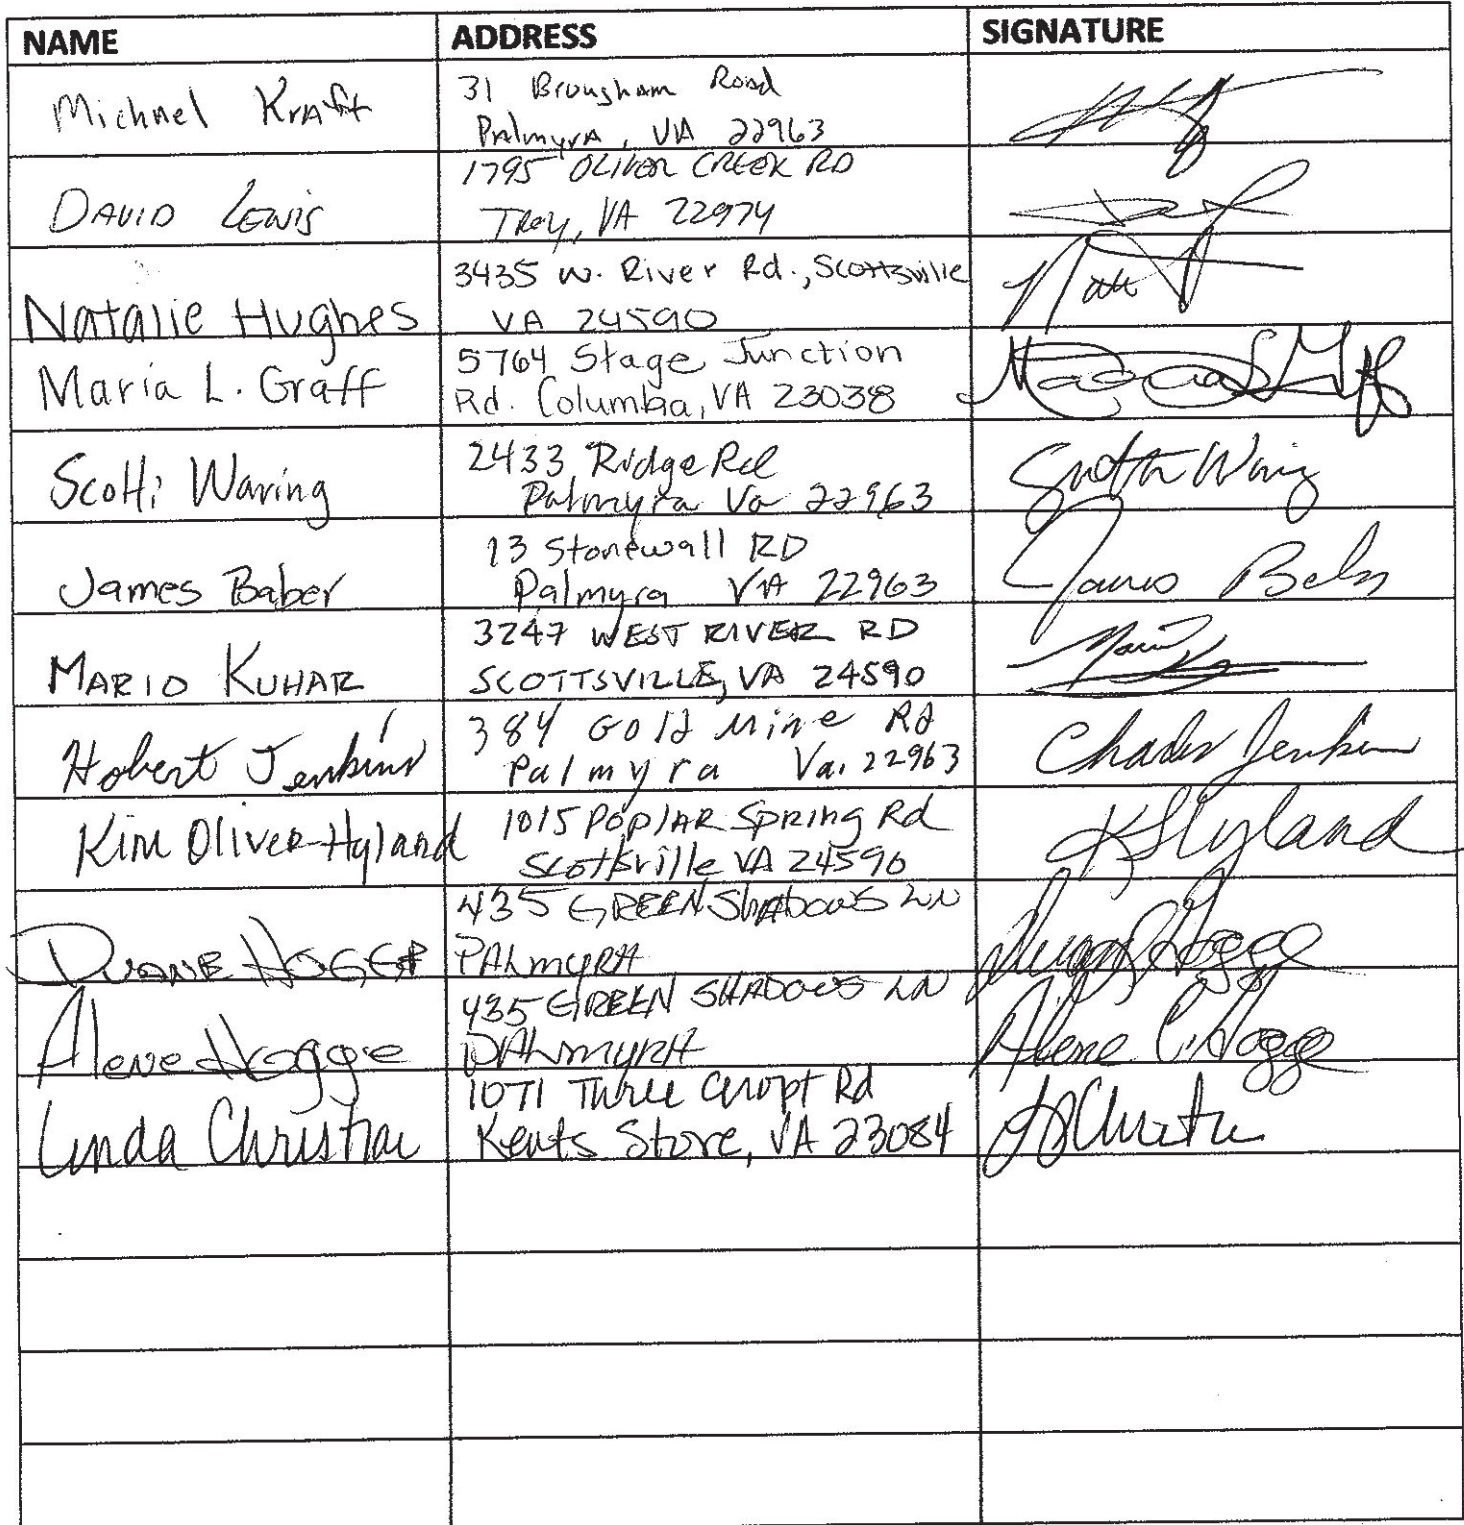 NAME ADDRESS SIGNATURE
Michael Kraft 31 Brougham Road
Palmyra, VA 22963
DAVID LEWIS 1795 OLIVER CREEK RD
TROY, VA 22974
Natalie Hughes 3435 W. River Rd., Scottsville
VA 24590
Maria L. Graff 5764 Stage Junction
Rd. Columbia, VA 23038
Scotti Waring 2433 Ridge Rd
Palmyra Va 22963
James Baber 13 Stonewall RD
Palmyra VA 22963
MARIO KUHAR 3247 WEST RIVER RD
SCOTTSVILLE, VA 24590
Hobert Jenkins 384 Gold Mine Rd Charles Jenkins
Palmyra Va. 22963
Kim Oliver-Hyland 1015 POPLAR SPRING Rd K Hyland
Scottsville VA 24590
DUANE HOGGE 435 GREEN ShADOWS LN Duane Hogge
PALMYRA
Alene Hogge 435 GREEN SHADOWS LN Alene C. Hogge
PALMYRA
Linda Christian 1071 Three Chopt Rd
Kents Store, VA 23084